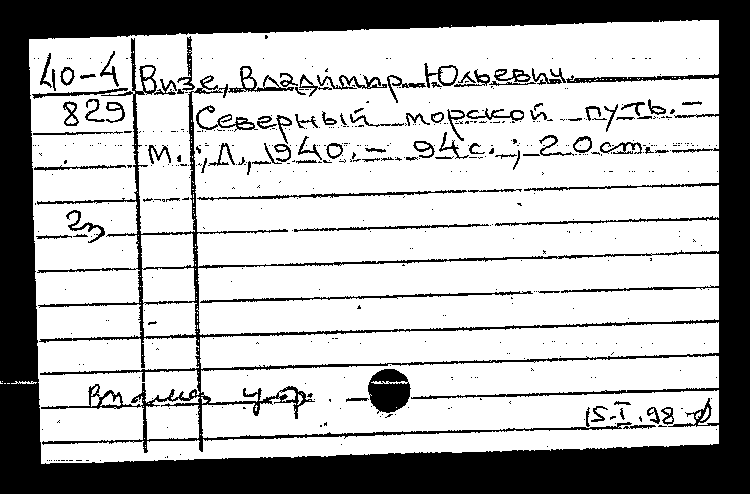 40-4 Визе, Владимир Юльевич.
829 Северный морской путь. –
М.; Л., 1940. – 94 с.; 20 cm.
15.I.98